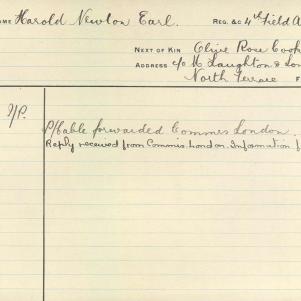 AME Harold Newton Earl. REG. &C 4th Field A
NEXT OF KIN Olive Rose Cook
ADDRESS c/o M Laughton & Lon
North Terrace F
I/P.
P/Cable forwarded Commis London.
Reply received from Commis. London. Information f